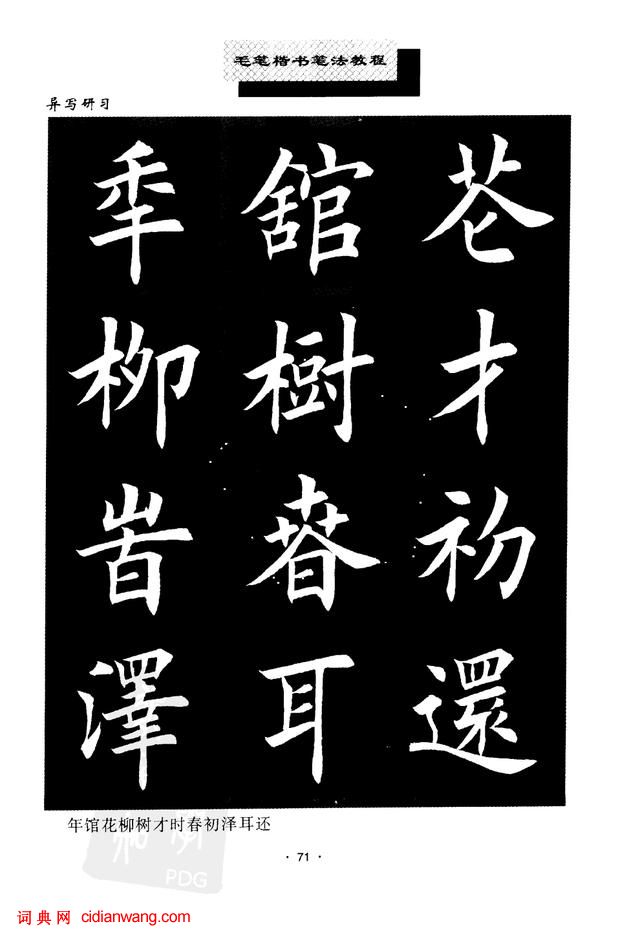 毛笔楷书笔法教程
异写研习
秊舘苍
柳樹才
旹萅初
澤耳還
年馆花柳树才时春初泽耳还
· 71 ·
PDG
词典网 cidianwang.com